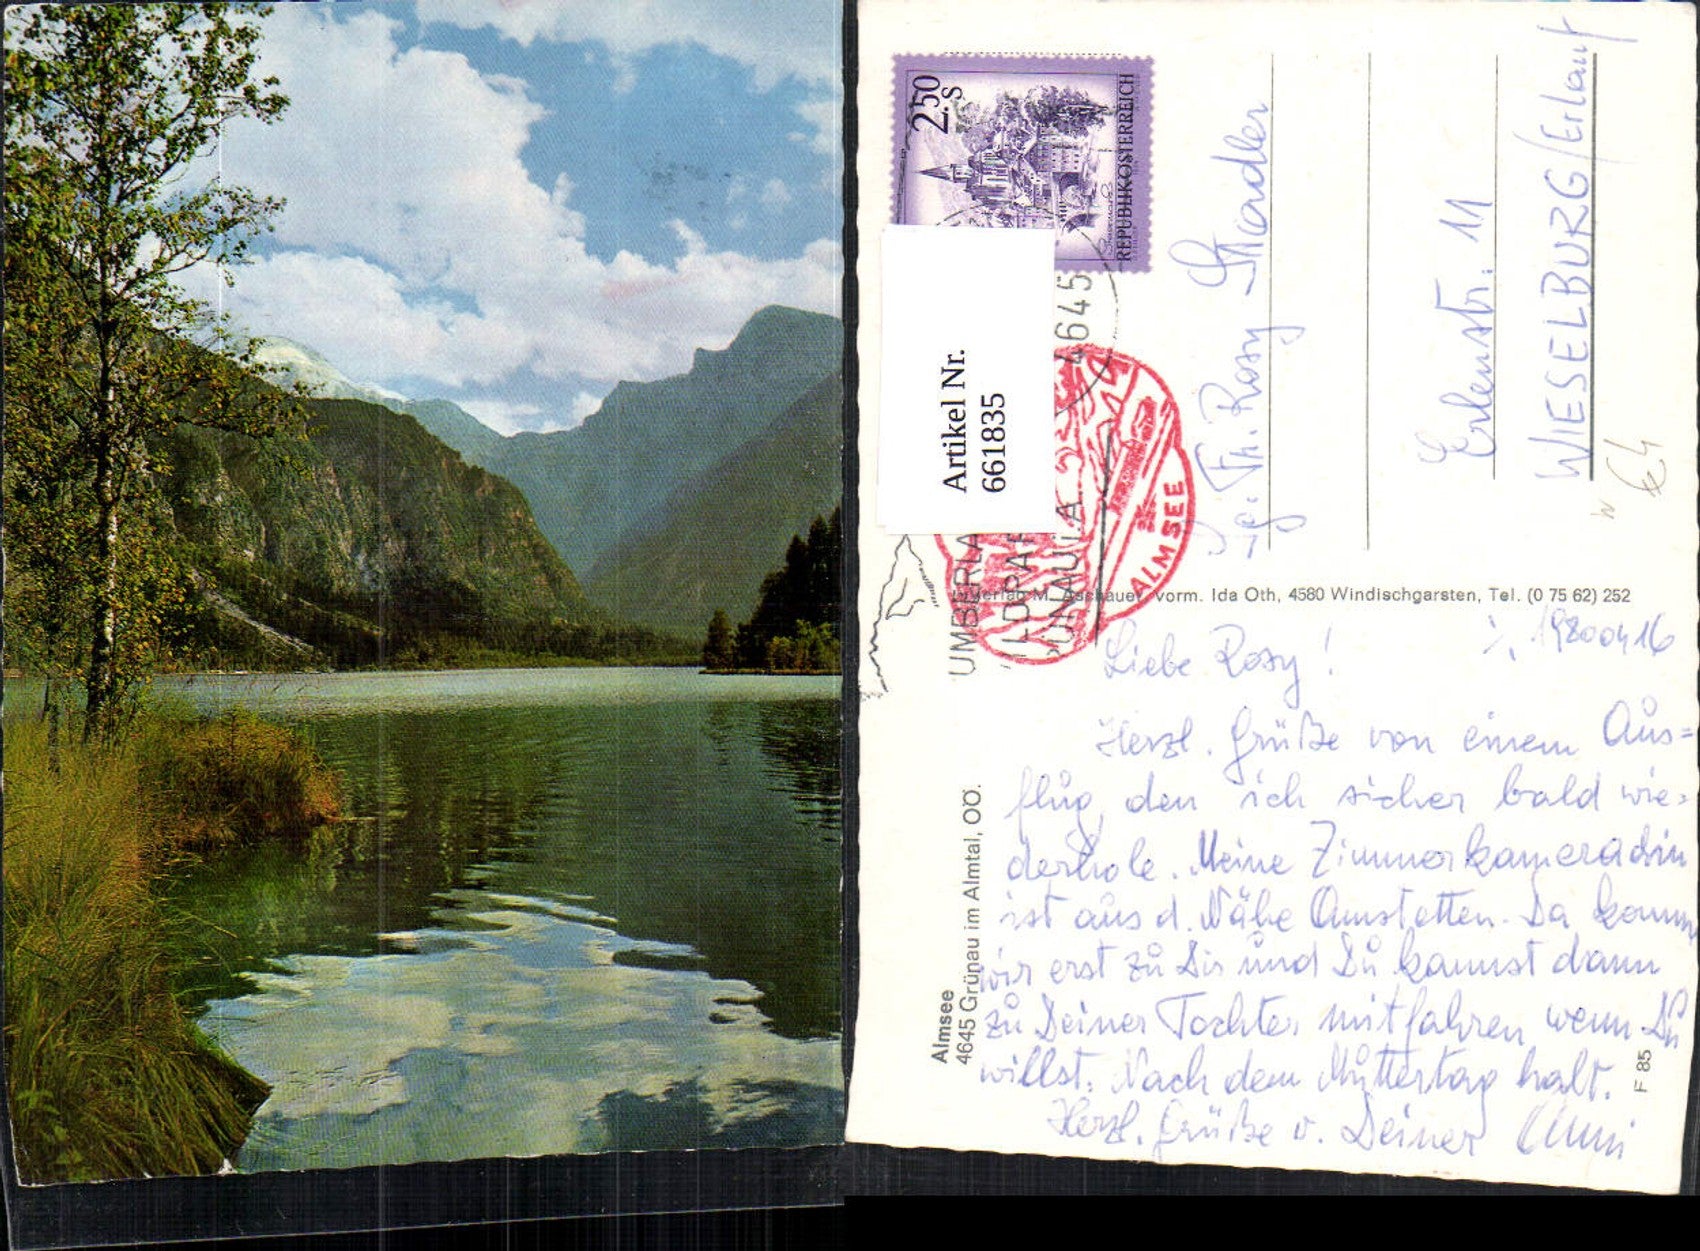 2.50
S
REPUBLIK ÖSTERREICH
4645
Artikel Nr.
6618835
ALMSEE
Th. Rosy Stadler
Erlenstr. 11
WIESELBURG/Erlauf
Verlag M. Aschauer, vorm. Ida Oth, 4580 Windischgarsten, Tel. (0 75 62) 252
19800416
Liebe Rosy!
Herzl. Grüße von einem Aus=
flug, den ich sicher bald wie=
derhole. Meine Zimmerkameradin
ist aus d. Nähe Amstetten. Da komm
wir erst zu Dir und Du kannst dann
zu Deiner Tochter mitfahren, wenn Du
willst. Nach dem Muttertag halt.
Herzl. Grüße v. Deiner Anni
Almsee
4645 Grünau im Almtal, OÖ.
F 85